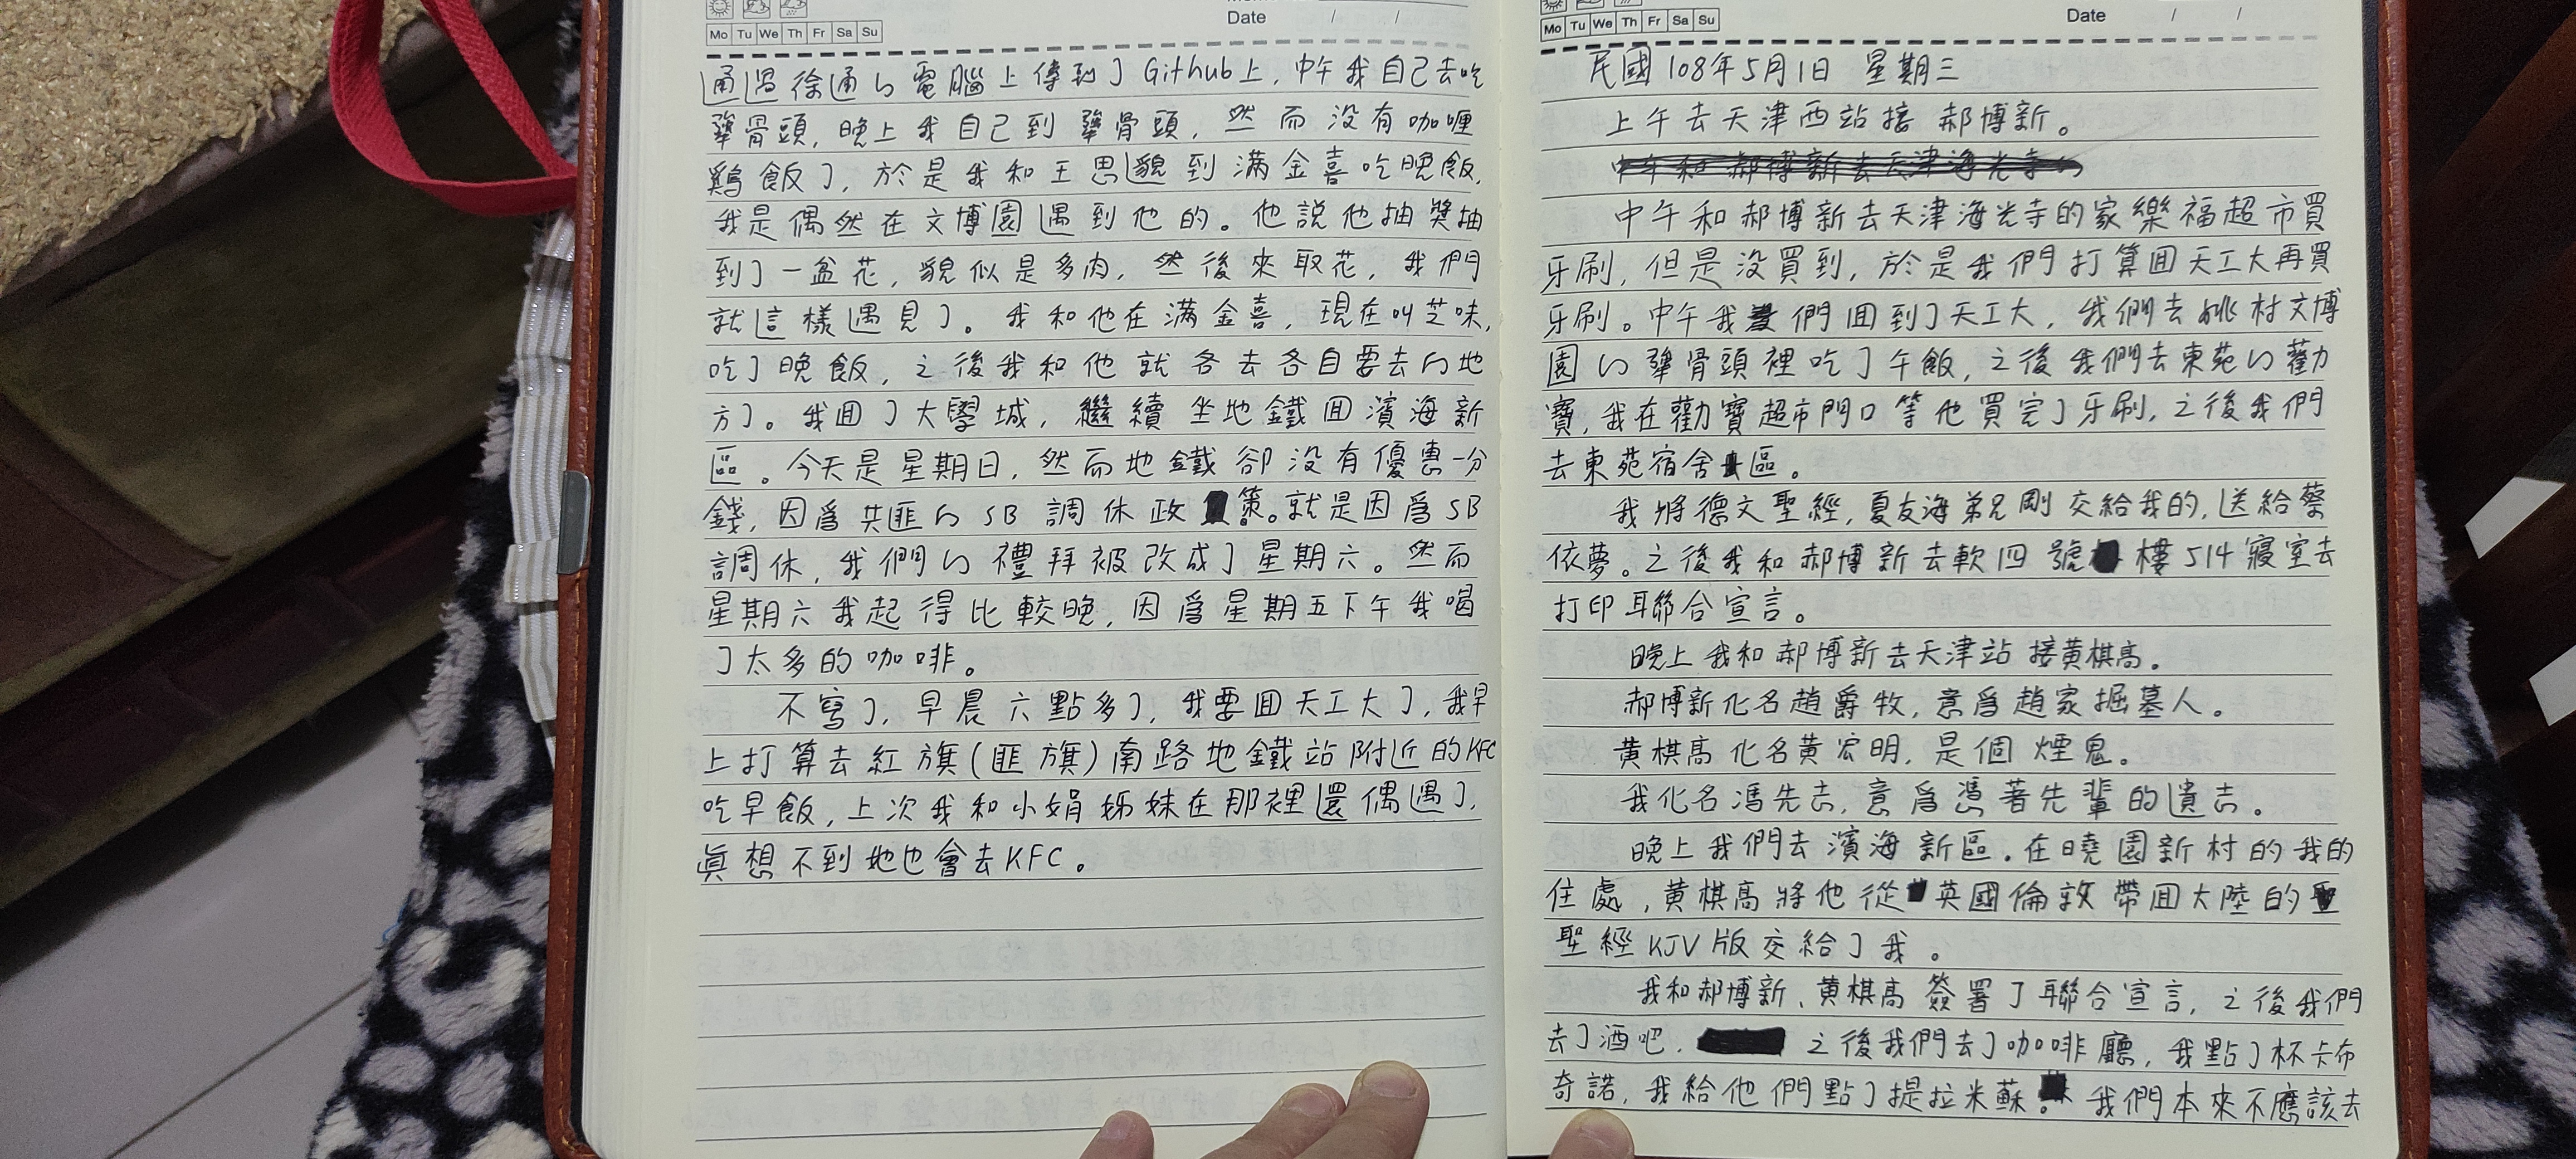 Date / /
Mo Tu We Th Fr Sa Su
通過徐通的電腦上傳到了Github上,中午我自己去吃
犟骨頭,晚上我自己到犟骨頭,然而没有咖喱
鷄飯了,於是我和王思邈到滿金喜吃晚飯,
我是偶然在文博園遇到他的。他説他抽奬抽
到了一盆花,貌似是多肉,然後來取花,我們
就這樣遇見了。我和他在滿金喜,現在叫芝味,
吃了晚飯,之後我和他就各去各自要去的地
方了。我囬了大學城,繼續坐地鐵囬濱海新
區。今天是星期日,然而地鐵卻没有優惠一分
錢,因爲共匪的SB調休政策。就是因爲SB
調休,我們的禮拜被改成了星期六。然而
星期六我起得比較晚,因爲星期五下午我喝
了太多的咖啡。
不寫了,早晨六點多了,我要囬天工大了,我早
上打算去紅旗(匪旗)南路地鐵站附近的KFC
吃早飯,上次我和小娟姊妹在那裡還偶遇了,
眞想不到她也會去KFC。
Date / /
Mo Tu We Th Fr Sa Su
民國108年5月1日 星期三
上午去天津西站接郝博新。
中午和郝博新去天津海光寺的
中午和郝博新去天津海光寺的家樂福超市買
牙刷,但是没買到,於是我們打算囬天工大再買
牙刷。中午我們囬到了天工大,我們去姚村文博
園的犟骨頭裡吃了午飯,之後我們去東苑的勸
寶,我在勸寶超市門口等他買完了牙刷,之後我們
去東苑宿舍區。
我將德文聖經,夏友海弟兄剛交給我的,送給蔡
依夢。之後我和郝博新去軟四號樓514寢室去
打印聯合宣言。
晚上我和郝博新去天津站接黄棋高。
郝博新化名趙爵牧,意爲趙家掘墓人。
黄棋高化名黄宏明,是個煙鬼。
我化名馮先去,意爲馮著先輩的遺志。
晚上我們去濱海新區。在曉園新村的我的
住處,黄棋高將他從英國倫敦帶囬大陸的
聖經KJV版交給了我。
我和郝博新、黄棋高簽署了聯合宣言,之後我們
去了酒吧,之後我們去了咖啡廳,我點了杯卡布
奇諾,我給他們點了提拉米蘇。我們本來不應該去